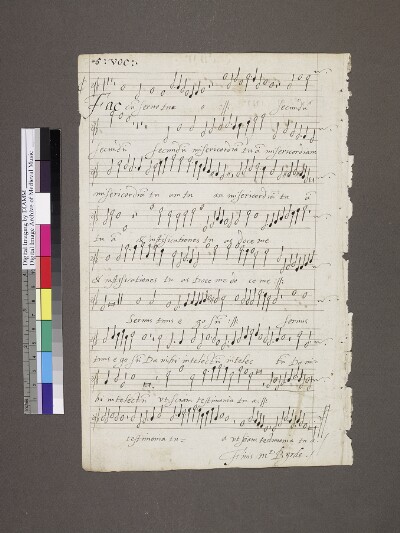 5: voc:
Fac cū servo tuo :||: secundū
secundū secundū misericordiā tuā misericordiam
misericordiā tu am tu am misericordiā tu ā
tu ā & iustificationes tu as doce me
& iustificationes tu as doce me do ce me :||:
servus tuus e go sū :||: servus
tuus e go sū Da mihi intelectū intelec tū Da mi
hi intelectū ut sciam testimonia tu a :||:
testimonia tu a ut sciam testimonia tu a
finis mr Byrde
Digital Imaging by DIAMM
Digital Image Archive of Medieval Music